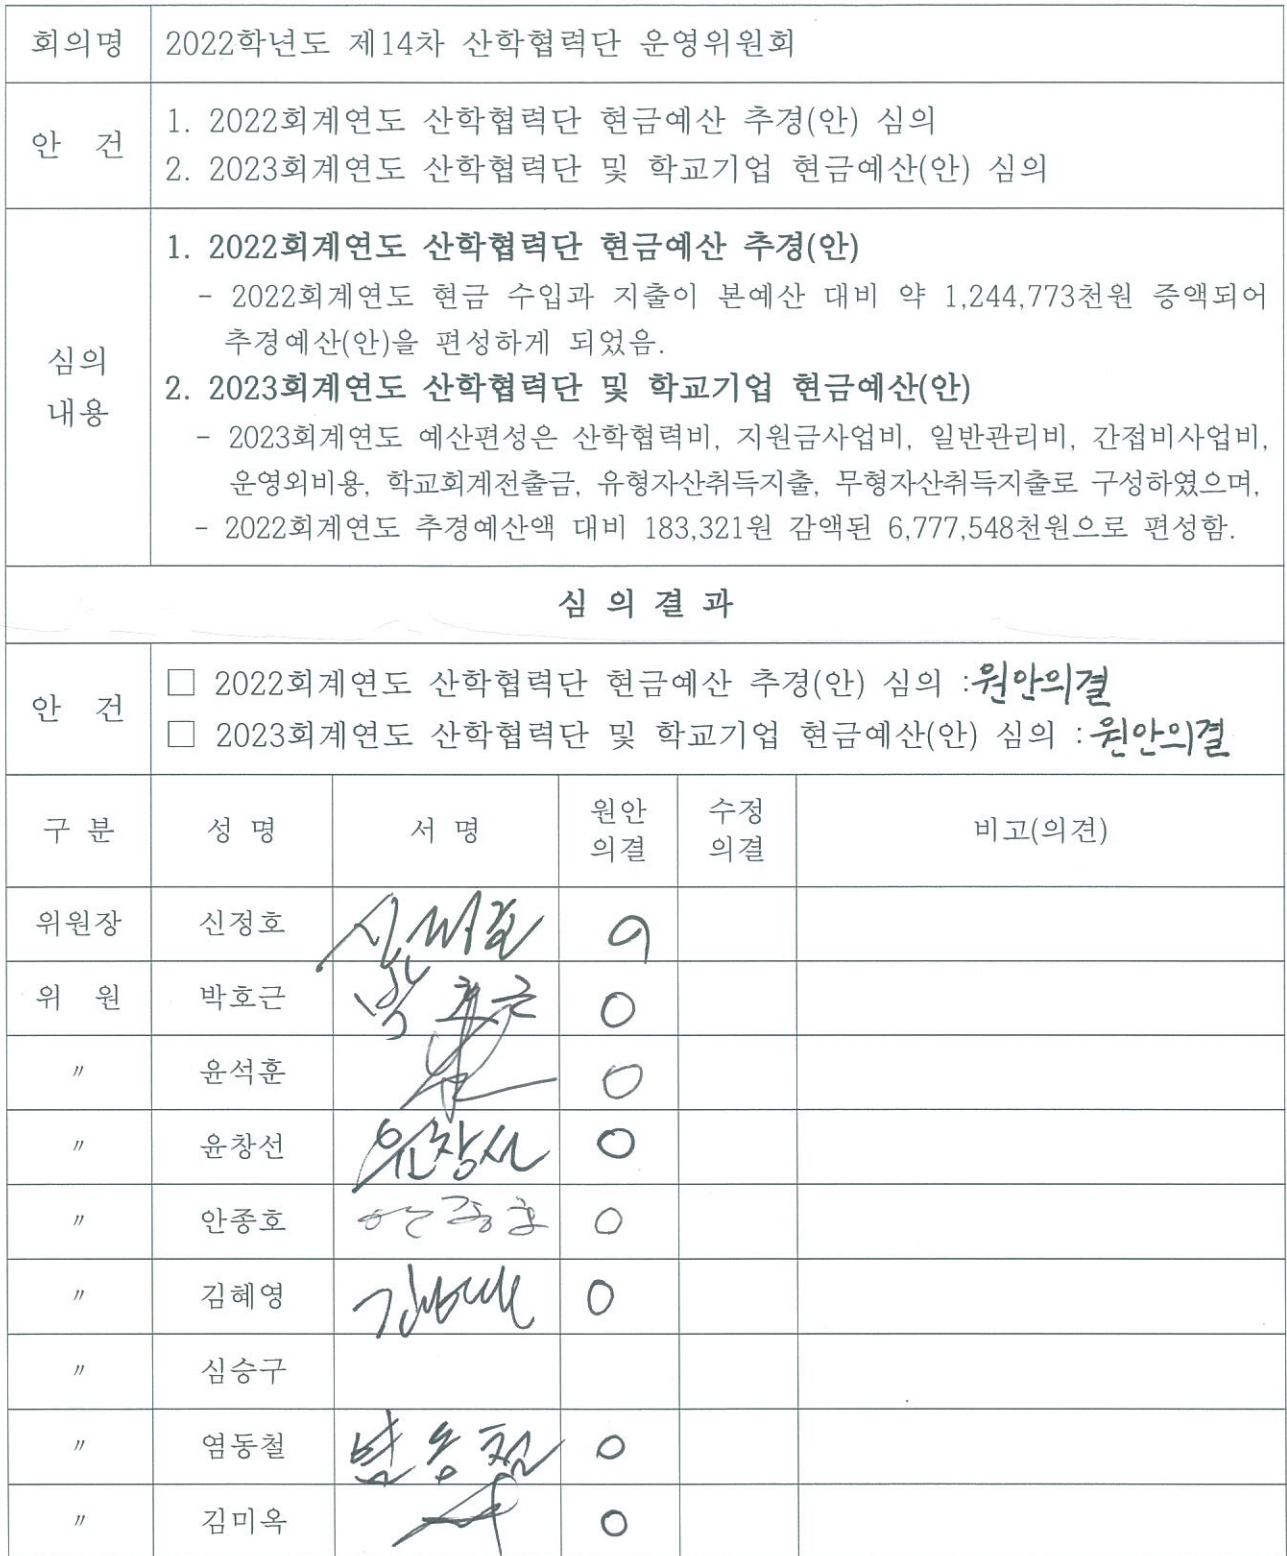 회의명 2022학년도 제14차 산학협력단 운영위원회
안 건
1. 2022회계연도 산학협력단 현금예산 추경(안) 심의
2. 2023회계연도 산학협력단 및 학교기업 현금예산(안) 심의
심의
내용
1. 2022회계연도 산학협력단 현금예산 추경(안)
- 2022회계연도 현금 수입과 지출이 본예산 대비 약 1,244,773천원 증액되어
추경예산(안)을 편성하게 되었음.
2. 2023회계연도 산학협력단 및 학교기업 현금예산(안)
- 2023회계연도 예산편성은 산학협력비, 지원금사업비, 일반관리비, 간접비사업비,
운영외비용, 학교회계전출금, 유형자산취득지출, 무형자산취득지출로 구성하였으며,
- 2022회계연도 추경예산액 대비 183,321원 감액된 6,777,548천원으로 편성함.
심 의 결 과
안 건
□ 2022회계연도 산학협력단 현금예산 추경(안) 심의 :원안의결
□ 2023회계연도 산학협력단 및 학교기업 현금예산(안) 심의 :원안의결
구 분 성 명 서 명 원안 의결 수정 의결 비고(의견)
위원장 신정호 O
위 원 박호근 박호근 O
〃 윤석훈 O
〃 윤창선 윤창선 O
〃 안종호 안종호 O
〃 김혜영 O
〃 심승구
〃 염동철 염동철 O
〃 김미옥 O